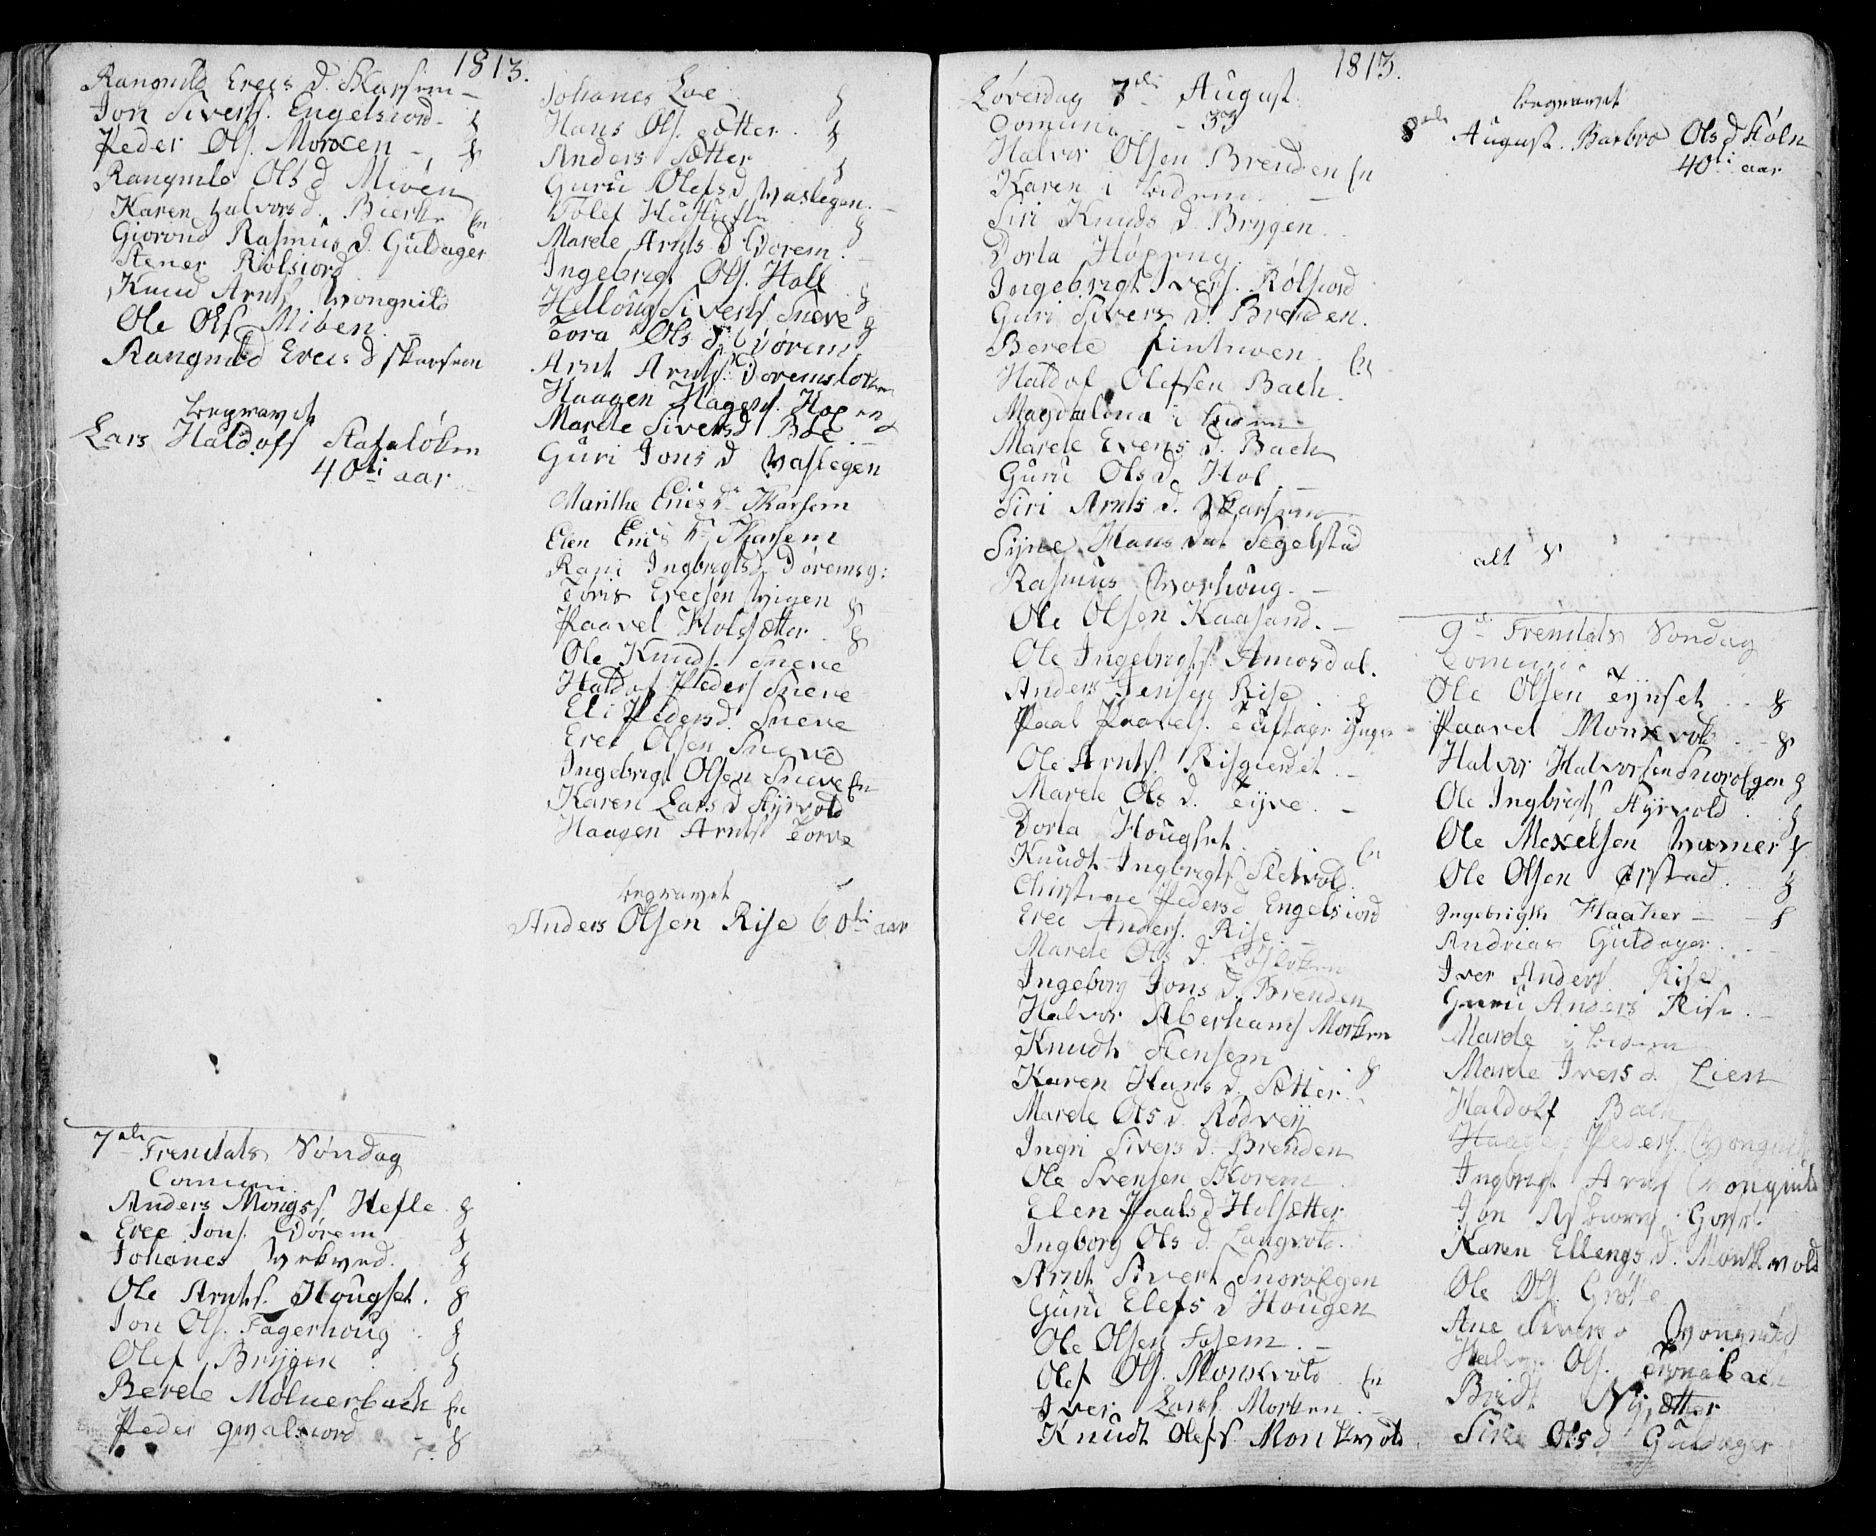 1813.
Rangnild Erecs d. Skarsem -
Jon Sivers. Engelsiord -
Peder Ols. Morken -
Rangnild Ols d Miøen
Karen Halvors d. Bierke En
Giorond Rasmus d. Guldager
Stener Rølsiord
Knud Arnts Wongnild
Ole Ols Miøen
Rangnild Erecs d Skarsem
begravet
Lars Haldofs Stataløken
40ti aar
7de Trenitatis Søndag
Comuni
Anders Mongss Hefle
Erec Jons. Dørem
Johanes
Ole Arnts. Hougset.
Jon Ols. Fagerhoug
Olef Brygen
Berete Mølnerbach En
Peder Qwalsiord
Johanes Loe
Hans Ols. Sætter.
Anders Sætter
Guru Olefs d Waslegen. -
Tolef
Marete Arnts d Dørem. -
Ingebrigt Ols. Holl
Helloug Siverts. Sneve
Tora Ols d Dørem
Arnt Arnts. Doremsløken
Haagen Hagens. Hopen
Marete Sivers d Bøe -
Guri Jons d Waslegen
Marithe Erics d Skarsem
Elen Erics d Skarsem
Rani Ingbrigts d Døremsg:
Toris Erecsen Wigen
Paavel Holssætter.
Ole Knuds. Sneve
Haldof Peders Sneve
Eli Peders d. Sneve
Erec Olsen Sneve
Ingebrigt Olsen Sneve En
Karen Lars d Styrvold
Haagen Arnts Torve
begravet
Anders Olsen Rise 60ti aar
1813.
Løverdag 7de August.
Comuni - 33
Halvor Olsen Brenden En
Karen i
Siri Knuds d. Brygen.
Dorta Høpeng.
Ingebrigt Ivers. Rølsiord
Guri Sivers d. Brenden.
Berete En
Haldof Olefsen Bach.
Magdalena i
Marete Evens d. Bach
Guru Ols d. Hol -
Siri Arnts d. Skarsem
Signe Hans dat Segelstad
Rasmus Worhoug. -
Ole Olsen Kaasand. -
Ole Ingebrigts. Amosdal.
Anders Jensen Rise
Paal Paavels. Tuftager
Ole Arnts Risgierdet. -
Marete Ols d. Tyve. -
Dorta Hougset. En
Knudt Ingbrigts Sletvold
Christine Peders d Engelsiord
Erec Anders. Rise. -
Marete Ols d.
Ingeborg Jons d. Brenden
Halvor Aberhams Morken
Knudt Stensem
Karen Hans d. Sætter.
Marete Ols d. Rødvey
Ingri Sivers d. Brenden
Ole Svensen Skorem
Elen Paals d Holsætter
Ingborg Ols d. Langvold.
Arnt Sivert Snorofgen
Guru Elefs d Hougen
Ole Olsen Fosem. -
Olef Ols. Monkvold. En
Iver Lars. Morken. -
Knudt Olefs. Monkvold.
begravet
8de August. Barbro Ols d Støln
40ti aar
alt
9de Trenitatis Søndag
Comuni.
Ole Olsen Tynset
Paavel Monkvold
Halvor Halvorsen Snorofgen
Ole Ingbrigts Styrvold
Ole Mekelsen
Ole Olsen Ørstad.
Ingebrigth Haaker -
Andrias Guldager.
Iver Anders. Rise
Guru Anders Rise. -
Marete i
Marete Ivers d. Lien
Haldolf Bach
Peders. Wongnild
Ingbrigt Arnts Wongnild
Jon
Karen Ellengs d. Monkvold
Ole Ols. Grøtte
Ane Wongnild
Ols.
Bridt Nysætter
Siri Ols d Guldager